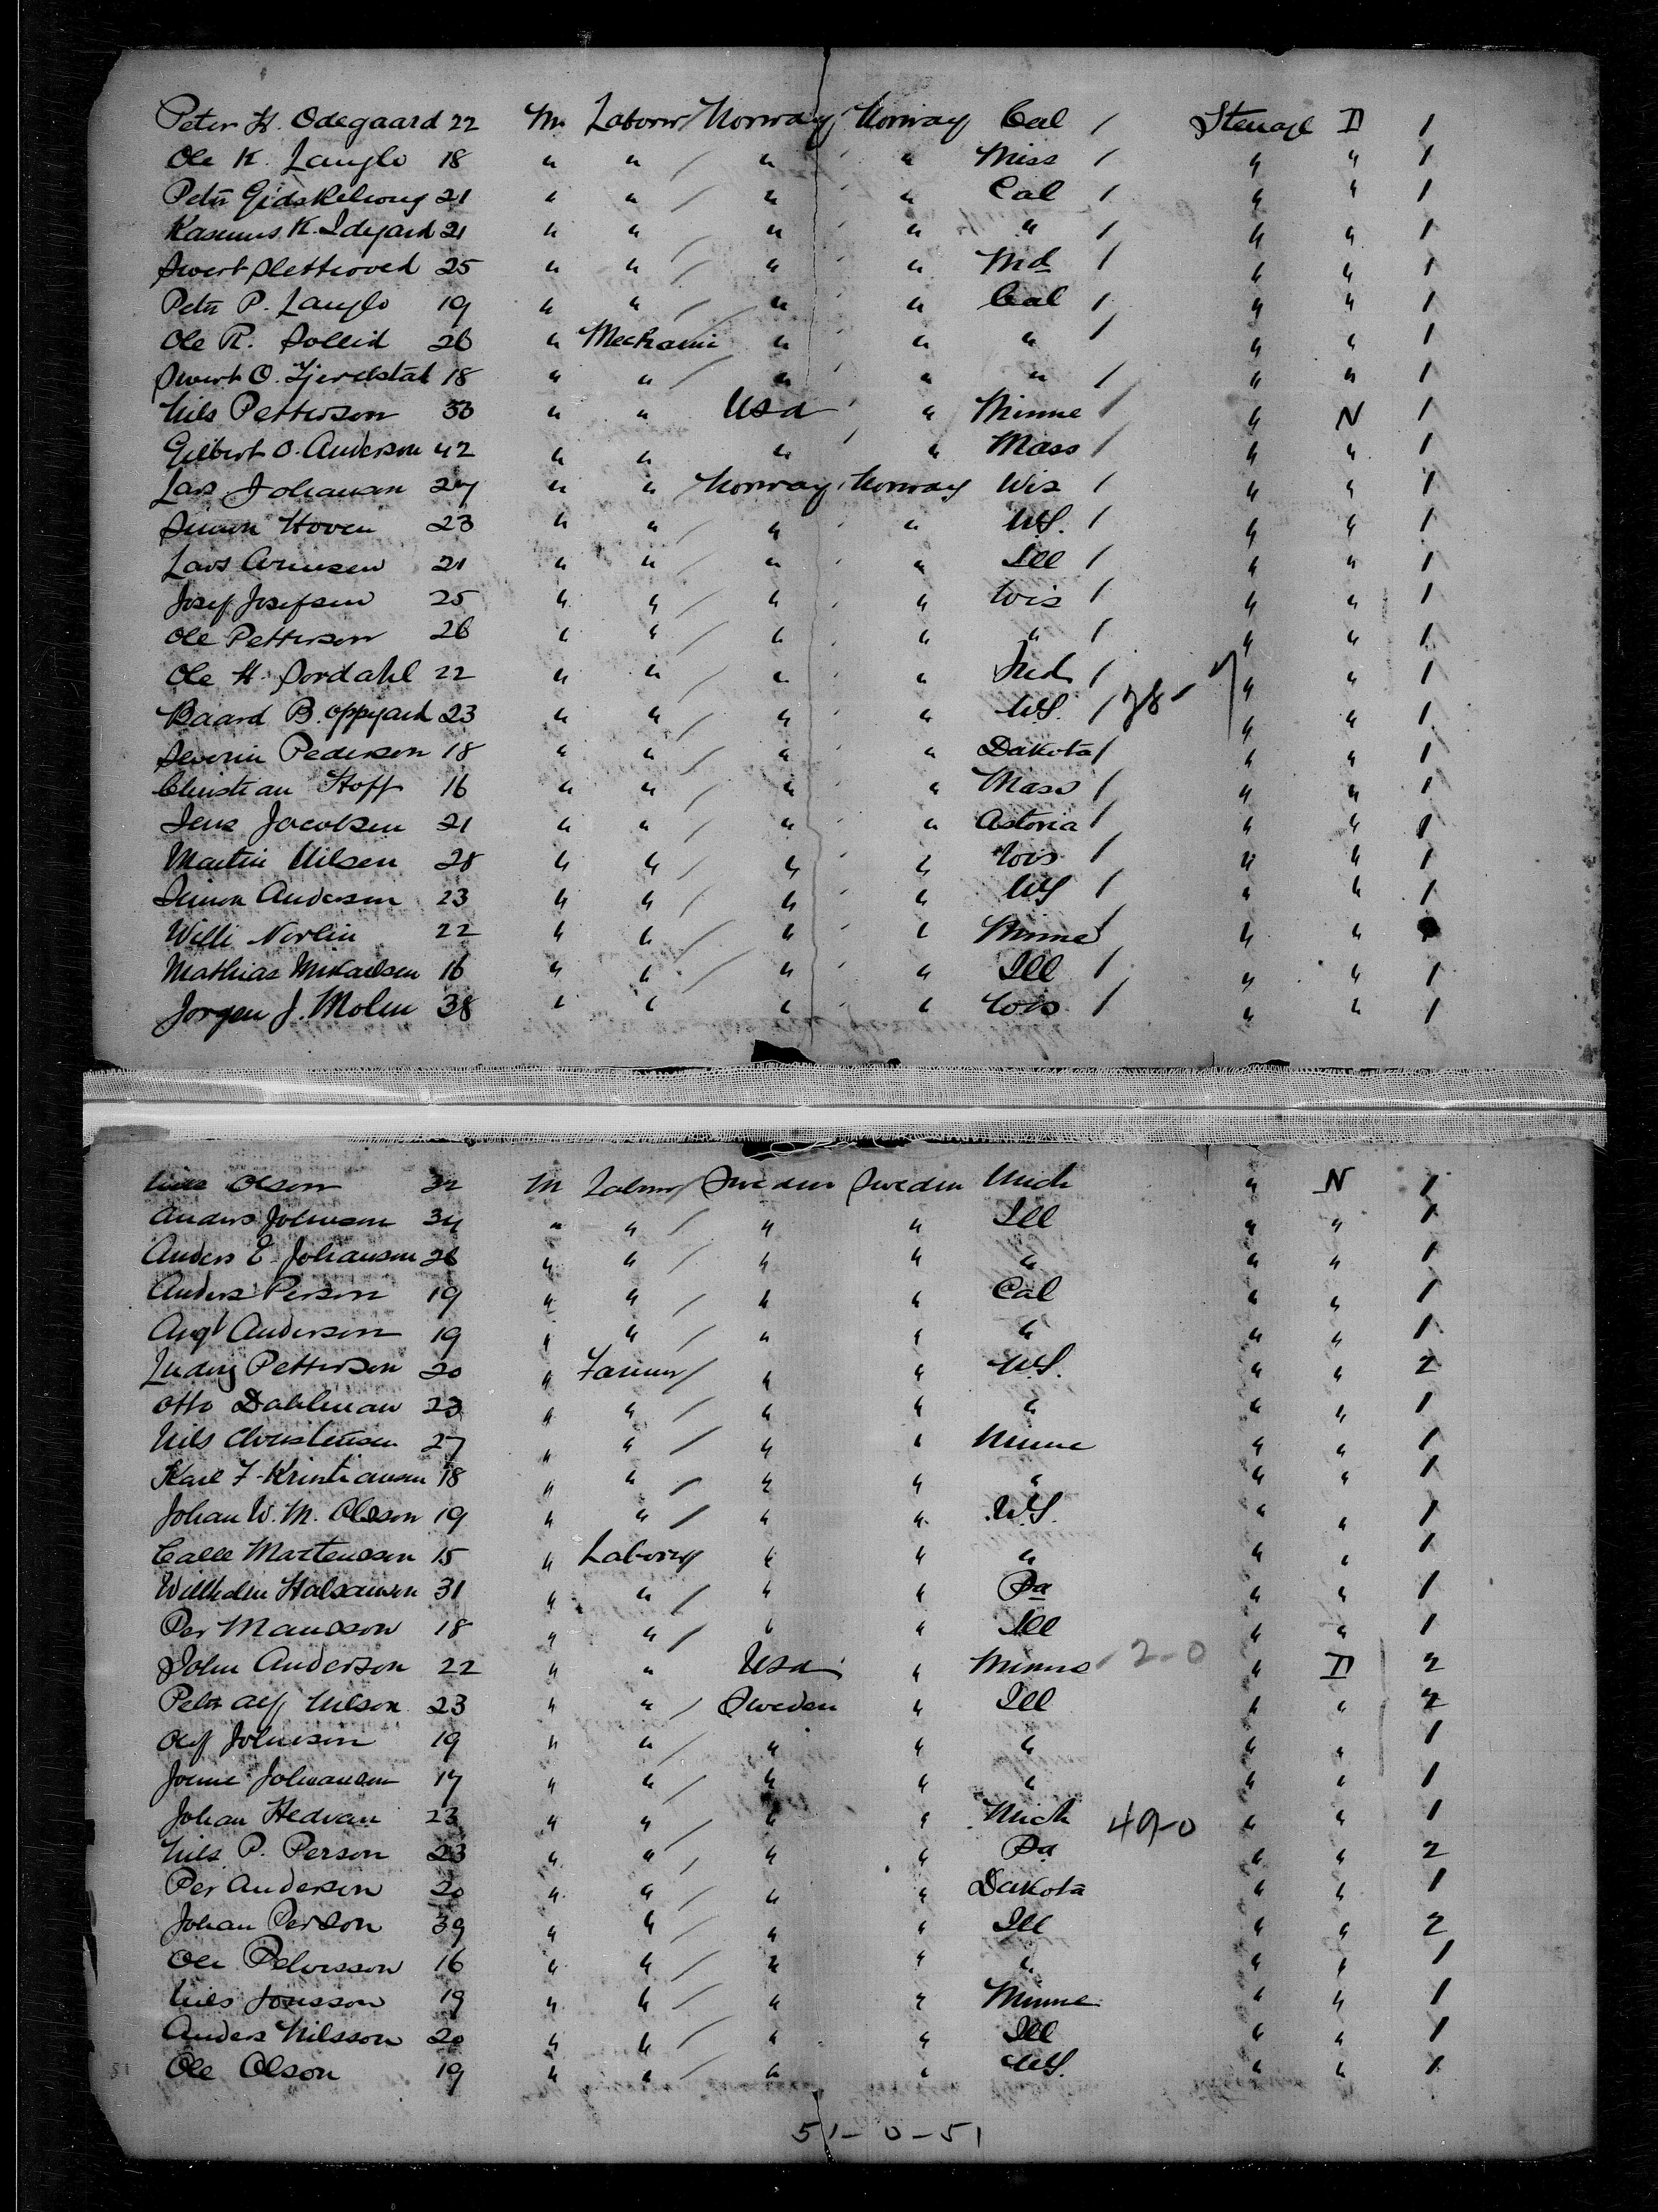 Peter H. Odegaard 22 M. Laborer / Norway Norway Cal / Sterage D 1
Ole K. Langlo 18 " " / " " Miss / " " 1
Petr Gidskehoug 21 " " / " " Cal / " " 1
Rasmus K. Idyard 21 " " / " " " / " " 1
Sivert Slettevoed 25 " " / " " Md / " " 1
Petr P. Langlo 19 " " / " " Cal / " " 1
Ole R. Sollid 26 " Mechanic " " " / " " 1
Sivert O. Fjerdstat 18 " " / " " " / " " 1
Nils Petterson 33 " " Usa " Minne / " N 1
Gilbert O. Anderson 42 " " " " Mass / " " 1
Lars Johansen 27 " " Norway Norway Wis / " " 1
Simon Hoven 23 " " / " " NY. / " " 1
Lars Arnesen 21 " " / " " Ill / " " 1
Josef Josefsen 25 " " / " " Wis / " " 1
Ole Petterson 26 " " / " " " / " " 1
Ole H. Sordahl 22 " " / " " Ind / " " 1
Baard B. Oppyard 23 " " / " " NY. / 78- " " 1
Severin Pederson 18 " " / " " Dakota / " " 1
Christian Hoff 16 " " / " " Mass / " " 1
Jens Jacobsen 21 " " / " " Astoria / " " 1
Martin Nilsen 28 " " / " " Wis / " " 1
Simon Anderson 23 " " / " " NY / " " 1
Willi Norlin 22 " " / " " Minne / " "
Mathias Mikaelsen 16 " " / " " Ill / " " 1
Jorgen J. Molen 38 " " " " Wis / " " 1
Olson 32 M Labour / Sweden Sweden Mich " N 1
Anders Johnson 34 " " / " " Ill " " 1
Anders E. Johanson 26 " " / " " " " " 1
Anders Person 19 " " / " " Cal " " 1
Augt Anderson 19 " " / " " " " " 1
Ludvig Petterson 20 " Farmer / " " NY. " " 2
Otto Dahlman 23 " " / " " " " " 1
Nils Christensen 27 " " / " " Minne " " 1
Karl F. Kristiansen 18 " " / " " " " " 1
Johan W. M. Olsson 19 " " / " " NY. " " 1
Calle Martensson 15 " Laborer / " " " " " 1
Willhelm 31 " " / " " Pa " " 1
Per Mansson 18 " " / " " Ill " " 1
John Anderson 22 " " Usa " Minne 2-0 " D 2
Petr Alf Nilson 23 " " / Sweden " Ill " " 2
Olof Johnson 19 " " / " " " " " 1
Johansen 17 " " / " " " " " 1
Johan Hedvan 23 " " / " " Mich 49-0 " " 1
Nils P. Person 23 " " / " " Pa " " 2
Per Anderson 20 " " / " " Dakota " " 1
Johan Person 39 " " / " " Ill " " 2
Ole 16 " " / " " " " " 1
Nils Jonsson 19 " " / " " Minne " " 1
Anders Nilsson 20 " " / " " Ill " " 1
Ole Olson 19 " " / " " NY. " " 1
51-0-51